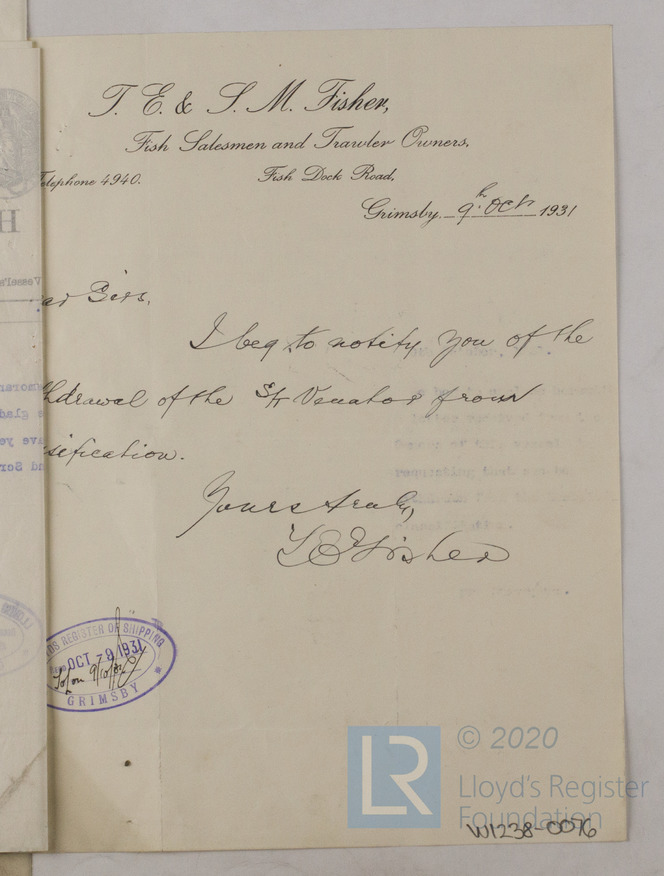 T. E. & S. M. Fisher,
Fish Salesmen and Trawler Owners,
Telephone 4940.
Fish Dock Road,
Grimsby. 9th Oct 1931
ar Sirs,
I beg to notify you of the
hdrawal of the S/T Venator from
sification.
Yours truly,
T E Fisher
DS REGISTER OF SHIPPING
OCT -9 1931
GRIMSBY
LR
© 2020
Lloyd's Register
Foundation
W1238-0076